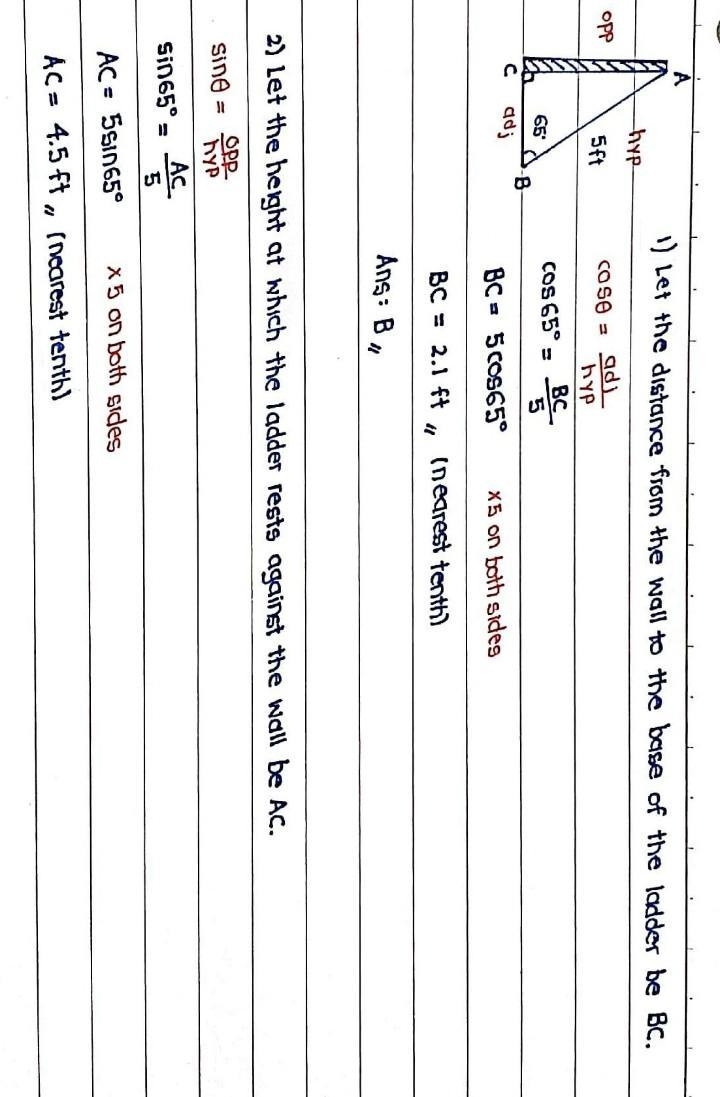 A
opp
hyp
5ft
65°
C
adj
B
1) Let the distance from the wall to the base of the ladder be BC.
cosθ = adj/hyp
cos65° = BC/5
BC = 5cos65° x5 on both sides
BC = 2.1 ft,, (nearest tenth)
Ans: B,,
2) Let the height at which the ladder rests against the wall be AC.
sinθ = opp/hyp
sin65° = AC/5
AC = 5sin65° x5 on both sides
AC = 4.5 ft,, (nearest tenth)